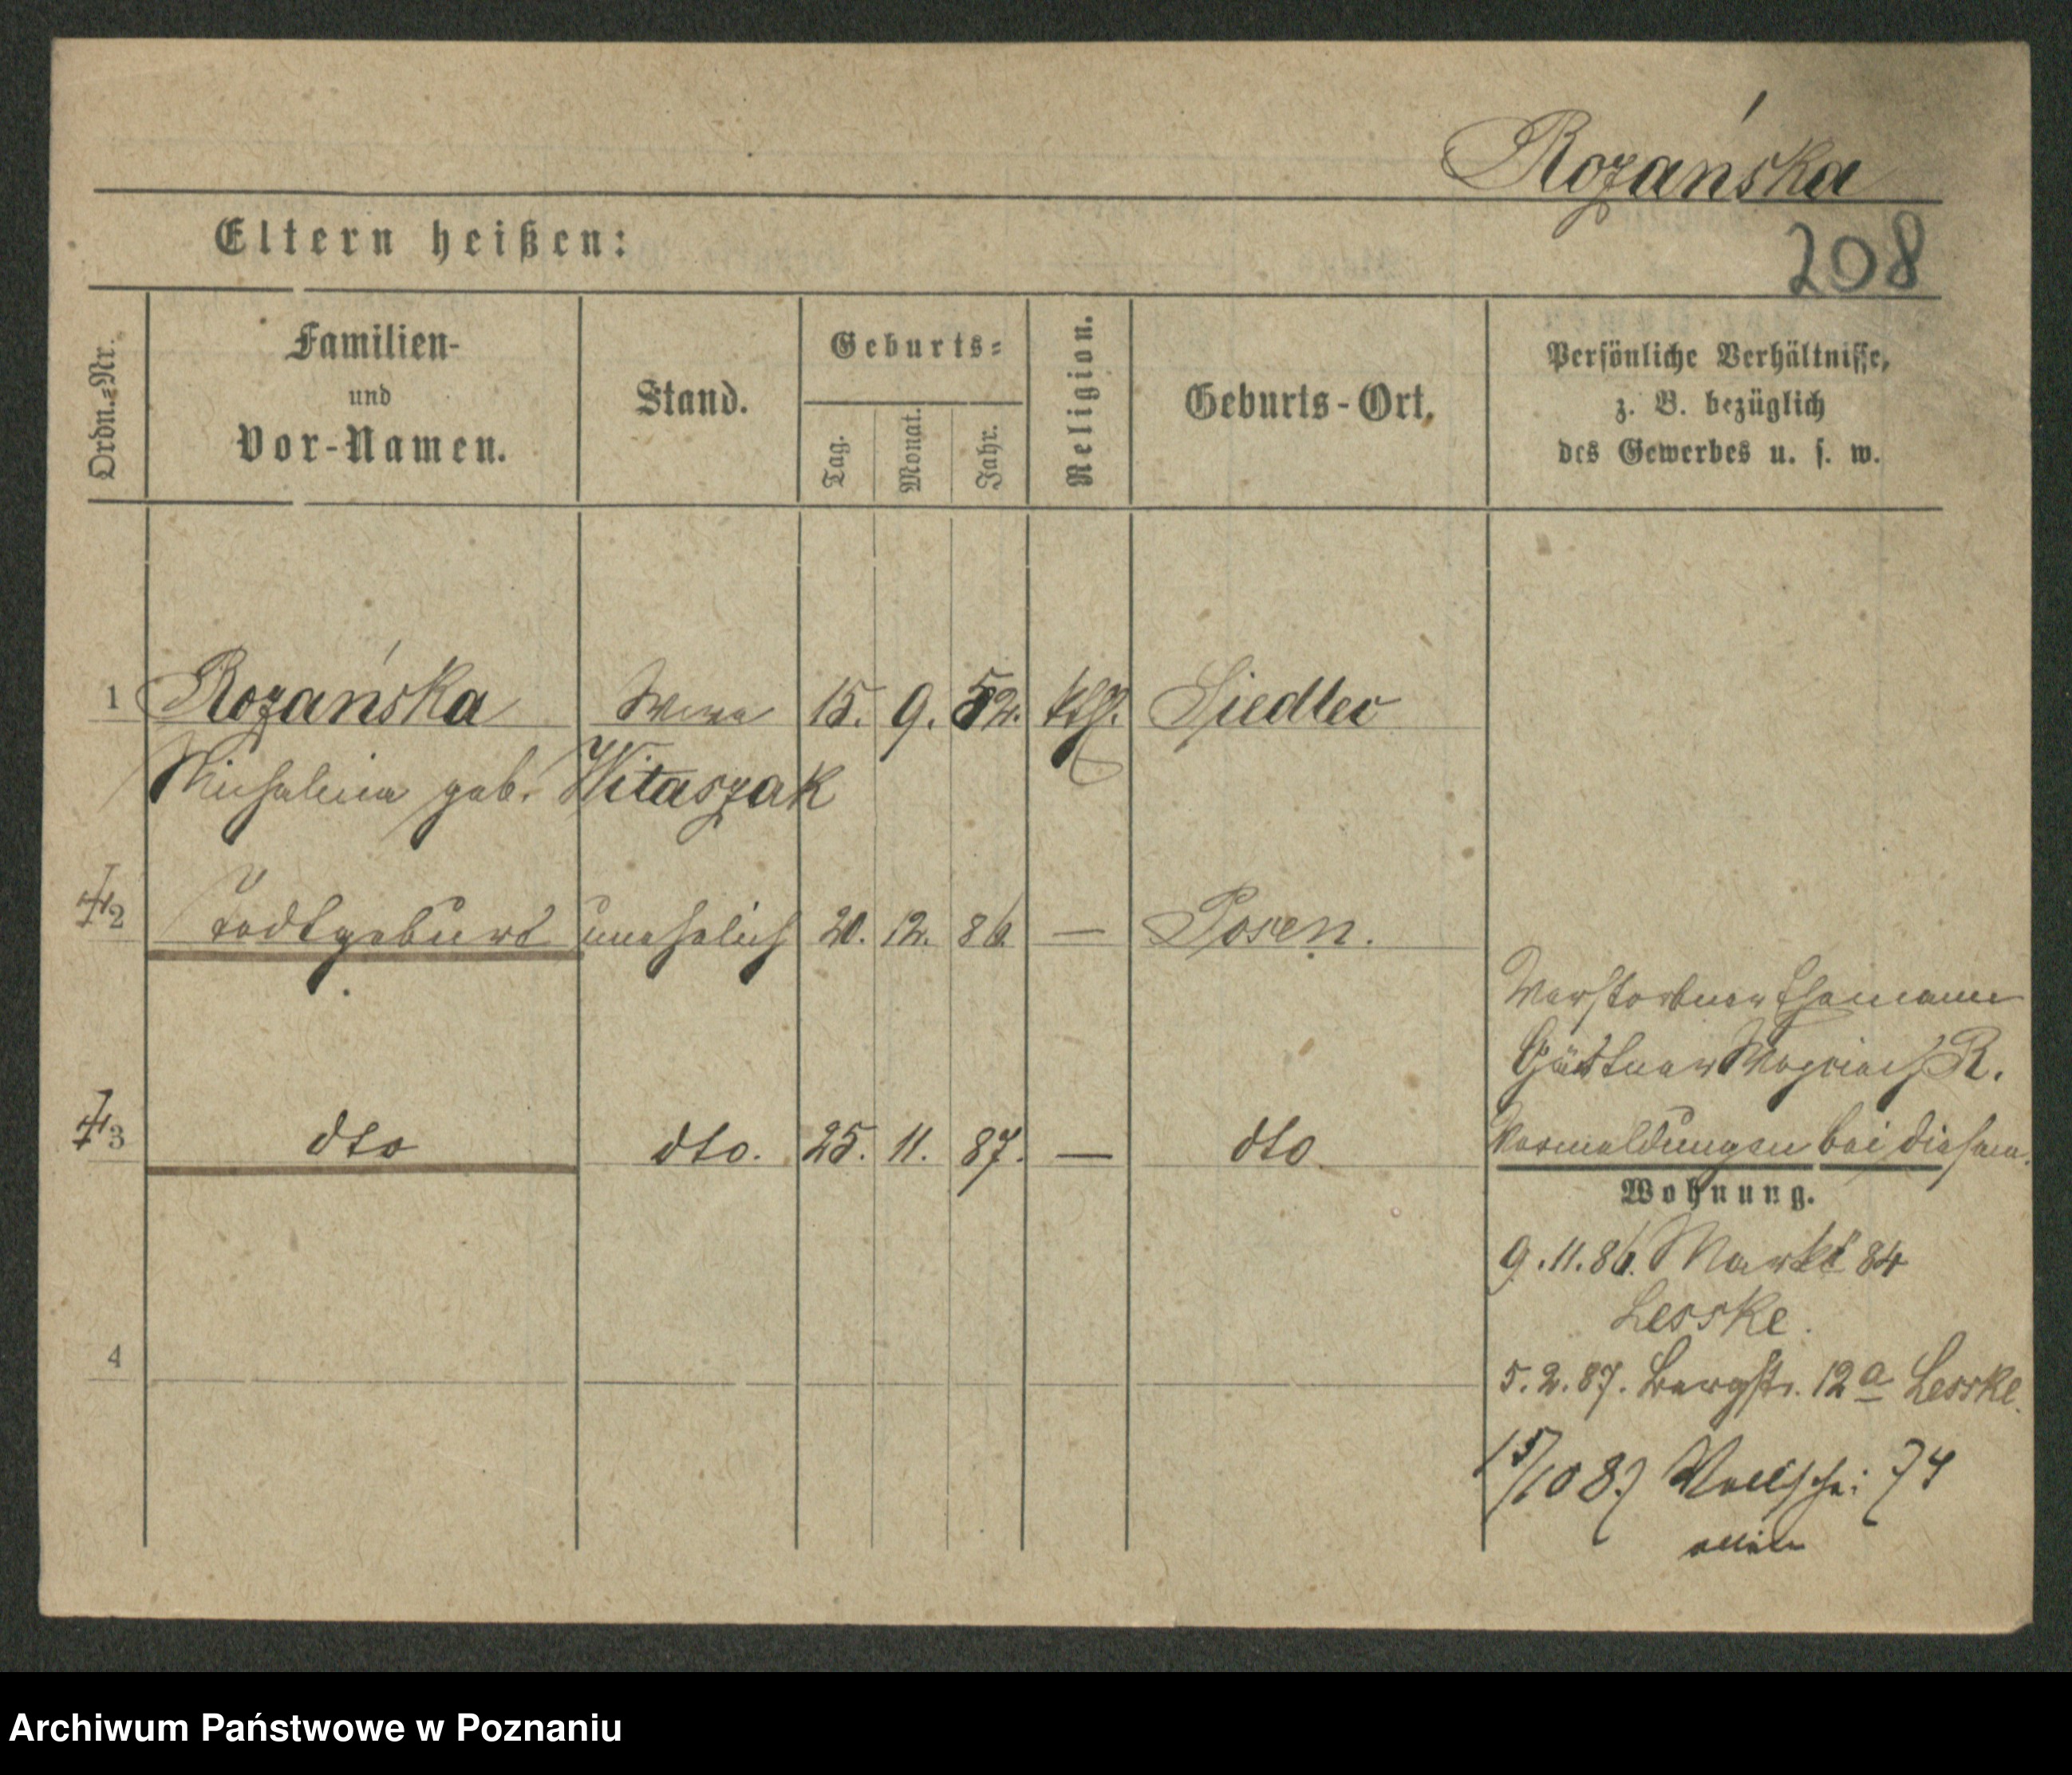 Rozańska
208
Eltern heißen:
Ordn.-Nr.
Familien-
und
Vor-Namen.
Stand.
Geburts-
Tag.
Monat.
Jahr.
Religion.
Geburts-Ort.
Persönliche Verhältnisse,
z. B. bezüglich
des Gewerbes u. s. w.
1 Rozańska Wwe 15. 9. 52. kth. Siedlec
Michalina geb. Witaszak
2 Todtgeburt unehelich 20. 12. 86 — Posen.
Verstorbener Ehemann
Gärtner R.
3 dto dto. 25. 11. 87. — dto
Vormeldungen bei diesem.
Wohnung.
9.11.86. Markt 84
Lesske.
4
5.2.87. Bergstr. 12a Lesske.
15/10 87 Wallische 74
allein
Archiwum Państwowe w Poznaniu